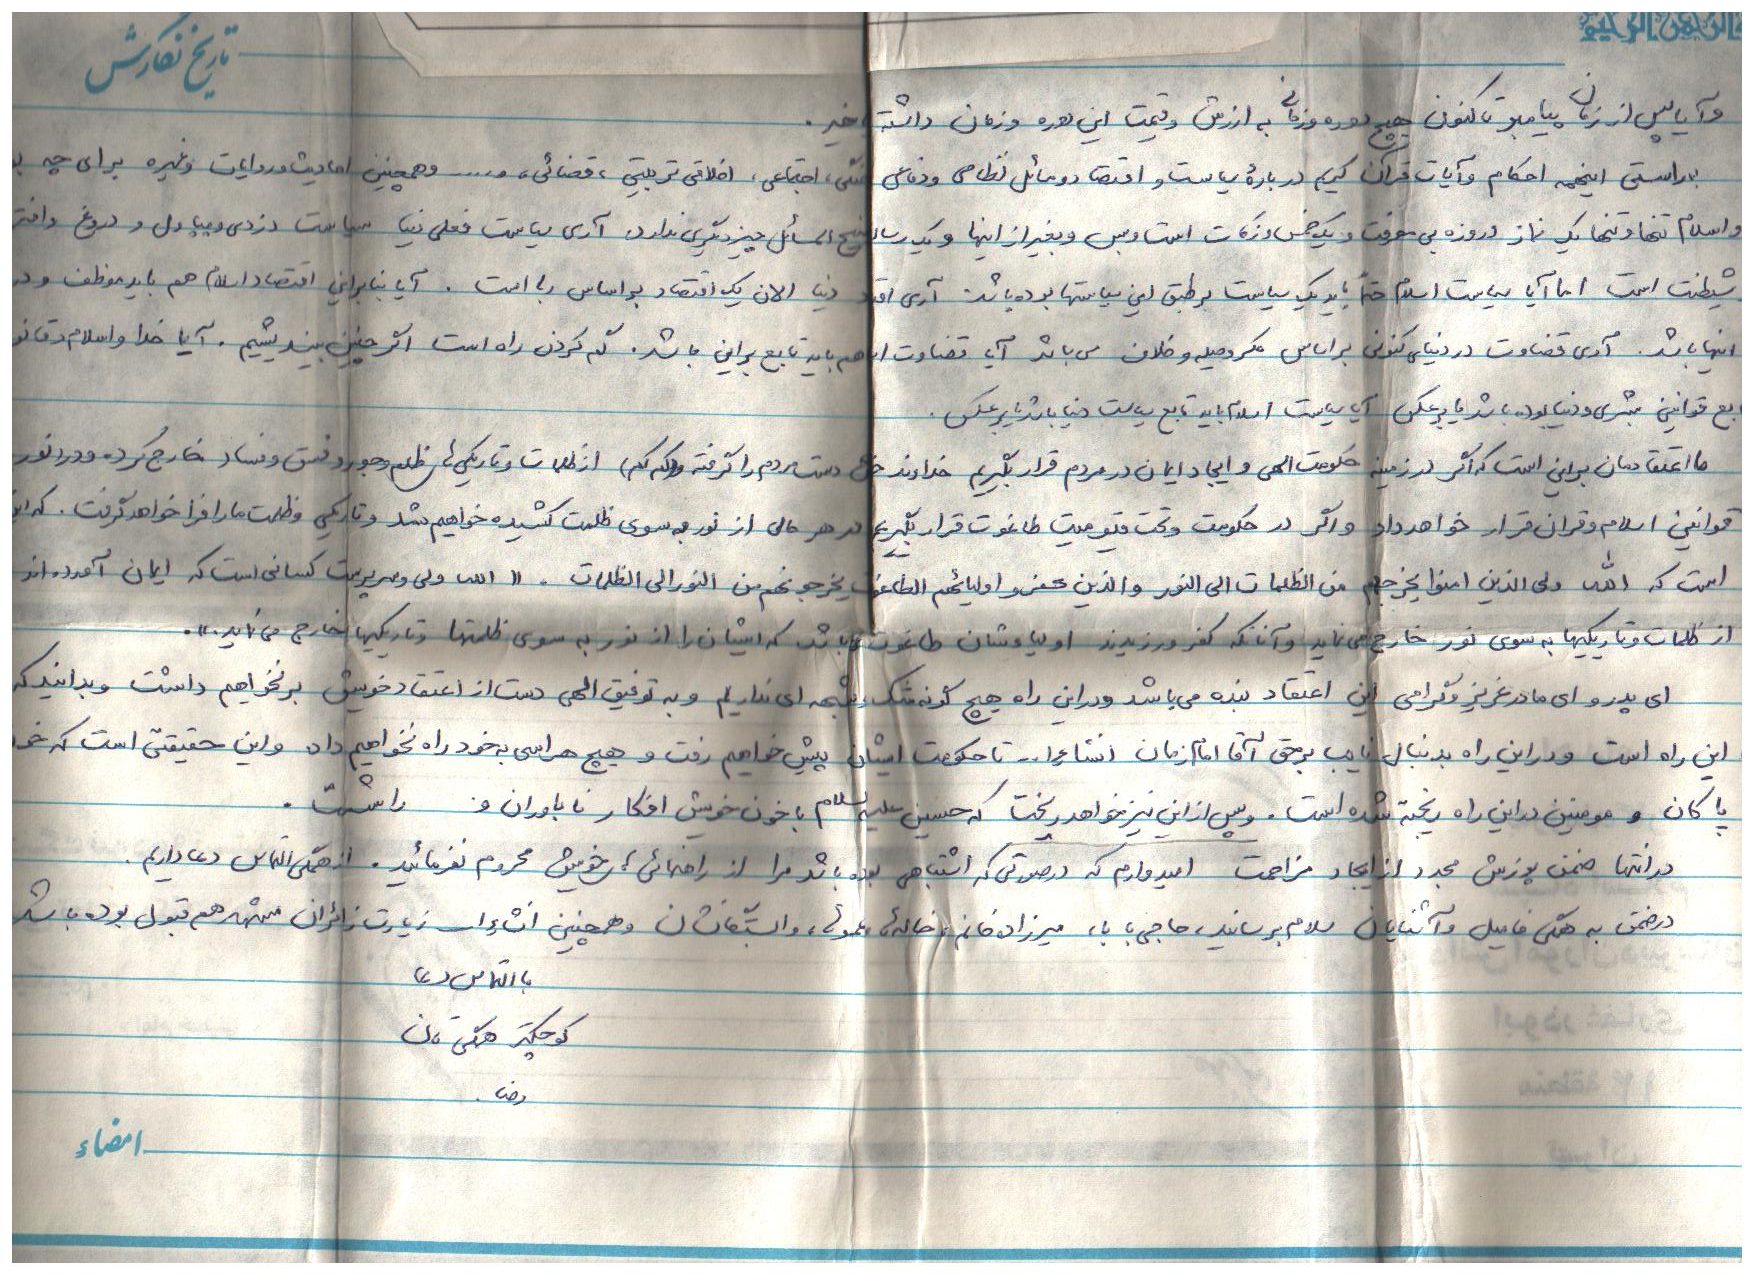 الرحمن الرحیم
تاریخ نگارش
و آیا پس از زمان پیامبر تا کنون هیچ دوره و زمانی به ارزش و قیمت این دوره و زمان داشته خیر.
براستی اینهمه احکام و آیات قرآن کریم درباره سیاست و اقتصاد و مسائل نظامی و دفاعی، جنگی، اجتماعی، اخلاقی تربیتی، قضائی، و.... و همچنین احادیث و روایات و غیره برای چه بو
و اسلام تنها و تنها یک نماز و روزه بی معرفت و یک خمس و زکات است و بس و بغیر از اینها و یک رساله توضیح المسائل چیز دیگری ندارد. آری سیاست فعلی دنیا سیاست دزدی و چپاول و دروغ و افتر
شیطنت است اما آیا سیاست اسلام حتماً باید یک سیاست بر طبق این سیاستها بوده باشد. آری اقتصاد دنیا الان یک اقتصاد بر اساس ربا است. آیا بنابراین اقتصاد اسلام هم باید موظف و در
اینها باشد. آری قضاوت در دنیای کنونی بر اساس مکر و حیله و خلاف می باشد آیا قضاوت اسلام هم باید تابع بر این باشد. گم کردن راه است اگر چنین بیندیشیم. آیا خدا و اسلام و قانو
بع قوانین بشری و دنیا بوده باشد یا برعکس آیا سیاست اسلام باید تابع سیاست دنیا باشد یا برعکس.
ما اعتقادمان بر این است که اگر در زمینه حکومت الهی و ایجاد ایمان در مردم قرار بگیریم خداوند خود دست مردم را گرفته و (کم کم) از ظلمات و تاریکی ها، ظلم و جور و فسق و فساد خارج کرده و در نور
قوانین اسلام و قرآن قرار خواهد داد و اگر در حکومت و تحت قیومیت طاغوت قرار بگیریم در هر حالی از نور به سوی ظلمت کشیده خواهیم شد و تاریکی و ظلمت ما را فرا خواهد گرفت. که این
است که الله ولی الذین امنوا یخرجهم من الظلمات الی النور والذین کفرو اولیائهم الطاغوت یخرجونهم من النور الی الظلمات. «الله ولی و سرپرست کسانی است که ایمان آورده اند
از ظلمات و تاریکیها به سوی نور خارج می نماید و آنانکه کفر ورزیدند اولیاءشان طاغوت می باشد که ایشان را از نور به سوی ظلمتها و تاریکیها خارج می نماید.».
ای پدر و ای مادر عزیز و گرامی این اعتقاد بنده می باشد و در این راه هیچ گونه شک و شبهه ای نداریم و به توفیق الهی دست از اعتقاد خویش بر نخواهیم داشت و بدانید که
این راه است و در این راه بدنبال نایب بر حق آقا امام زمان انشاءا... تا حکومت ایشان پیش خواهیم رفت و هیچ هراسی به خود راه نخواهیم داد و این حقیقتی است که خو
پاکان و مومنین در این راه ریخته شده است. و پس از این نیز خواهد ریخت که حسین علیه السلام با خون خویش افکار ناباوران و را شست.
در انتها ضمن پوزش مجدد از ایجاد مزاحمت امیدوارم که در صورتی که اشتباهی بوده باشد مرا از راهنمائی های خویش محروم نفرمائید. از همگی التماس دعا داریم.
در ضمن به همگی فامیل و آشنایان سلام برسانید، حاجی بابا، میرزاده خانم، خاله ها، عموها، وابستگانشان و همچنین انشاءا.. زیارت زائران مشهد هم قبول بوده باشد
با التماس دعا
کوچکتر همگی تان
رضا.
امضاء